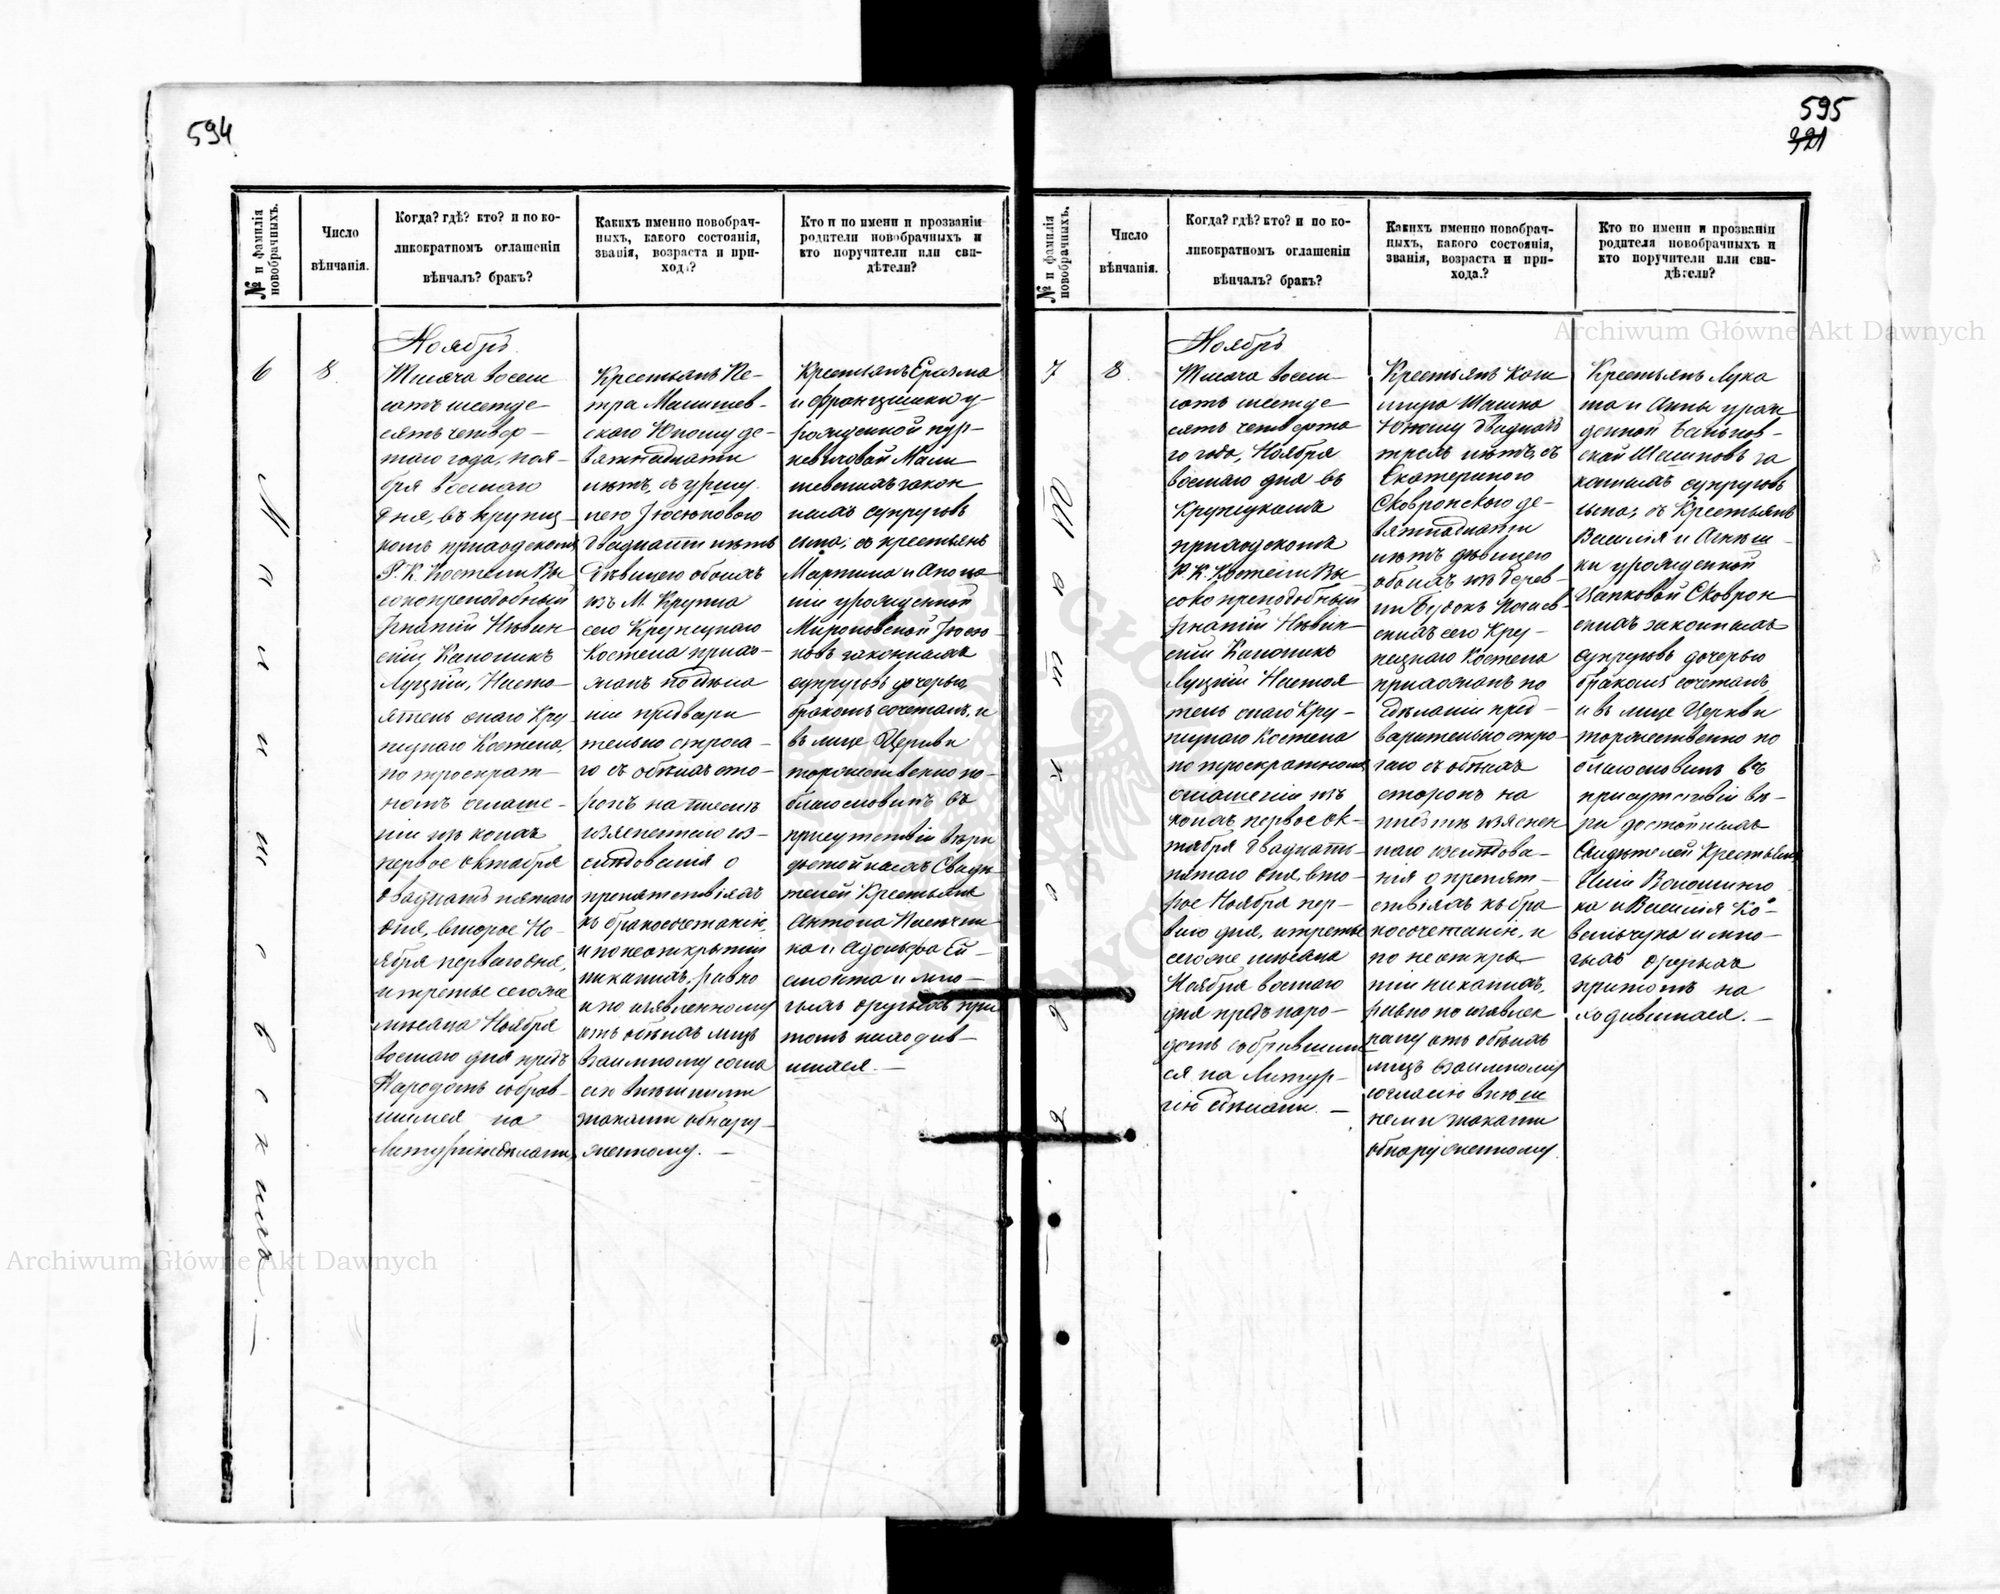 594
№ и фамилія новобрачныхъ.
Число вѣнчанія.
Когда? гдѣ? кто? и по ко-
ликократномъ оглашеніи
вѣнчалъ? бракъ?
Какихъ именно новобрач-
ныхъ, какого состоянія,
званія, возраста и при-
хода?
Кто и по имени и прозванію
родители новобрачныхъ и
кто поручители или сви-
дѣтели?
6
8.
Ноябрь
Тысяча восем
сотъ шестьде
сятъ четвер-
таго года, ноя-
бря восьмаго
дня, въ Крупец-
комъ приходскомъ
Р. К. Костелѣ Вы
сокопреподобный
Игнатій
Каноникъ
Луцкій, Насто-
ятель онаго Кру-
пецкаго Костела,
по троекрат-
номъ оглаше-
ніи изъ коихъ
первое Октября
двадцать пятаго
дня, второе Но-
ября перваго дня,
и третье сего же
мѣсяца Ноября
восьмаго дня предъ
Народомъ собрав-
шимся на
Литургію дѣланы,
Крестьянъ Пе-
тра Малишев-
скаго Юношу де-
вятнадцати
лѣтъ, съ Уршу
лею
двадцати лѣтъ
Дѣвицею обоихъ
изъ М. Крупца
сего Крупецкаго
Костела прихо-
жанъ по дѣла
ніи предвари
тельно строга-
го съ обѣихъ сто-
ронъ на письмѣ
изясненнаго из-
слѣдованія о
препятствіяхъ
къ бракосочетанію,
и по неоткрытіи
никакихъ, равно
и по изявленному
отъ обѣихъ лицъ
взаимному согла
сію внѣшними
знаками обнару-
женному. —
Крестьянъ Еразма
и Францишки у-
рожденной
Мали
шевскихъ закон
ныхъ супруговъ
сына; съ крестьянъ
Мартина и Аполо
ніи урожденной
Мироновской
законныхъ
супруговъ дочерью
бракомъ сочеталъ, и
въ лице Церкви
торжественно по-
благословилъ въ
присутствіи вѣры
достойныхъ Свидѣ
телей Крестьянъ
Антона
и Адольфа
и мно-
гихъ другихъ при
томъ находив-
шихся. —
Малишевскихъ. —
595
321
№ и фамилія новобрачныхъ.
Число вѣнчанія.
Когда? гдѣ? кто? и по ко-
ликократномъ оглашеніи
вѣнчалъ? бракъ?
Какихъ именно новобрач-
ныхъ, какого состоянія,
званія, возраста и при-
хода?
Кто по имени и прозваніи
родителя новобрачныхъ и
кто поручители или сви-
дѣтели?
7
8.
Ноябрь
Тысяча восем-
сотъ шестьде
сятъ четверта
го года, Ноября
восьмаго дня въ
Крупецкомъ
приходскомъ
Р. К. Костелѣ Вы
соко преподобный
Игнатій
Каноникъ
Луцкій Настоя
тель онаго Кру-
пецкаго Костела
по троекратномъ
оглашеніи изъ
коихъ первое Ок-
тября двадцать-
пятаго дня, вто-
рое Ноября пер-
ваго дня, и третье
сего же мѣсяца
Ноября восьмаго
дня предъ наро-
домъ собравшим
ся на Литур-
гію дѣланы. —
Крестьянъ Кази
мира
Юношу двадцать
трехъ лѣтъ, съ
Екатериною
Сковронскою де-
вятнадцати
лѣтъ дѣвицею
обоихъ изъ Дерев-
ни
сего Кру-
пецкаго Костела
прихожанъ по
дѣланіи пред-
варительно стро-
гаго съ обѣихъ
сторонъ на
письмѣ изяснен
наго изслѣдова-
нія о препят-
ствіяхъ къ бра
косочетанію, и
по неоткры-
тіи никакихъ,
равно по изявлен
ному отъ обѣихъ
лицъ взаимному
согласію внѣш
ними знаками
обнаруженному.
Крестьянъ Лука
ша и Анны урож
денной
за
конныхъ супруговъ
сына; съ Крестьянъ
Василія и Агнѣш-
ки урожденной
Сковрон
скихъ законныхъ
супруговъ дочерью
бракомъ сочеталъ,
и въ лице Церкви
торжественно по
благословилъ въ
присутствіи вѣ-
ры достойныхъ
Свидѣтелей Крестьянъ
и Василія Ко-
вальчука и мно-
гихъ другихъ
притомъ на
ходившихся. —
Archiwum Główne Akt Dawnych
Archiwum Główne Akt Dawnych